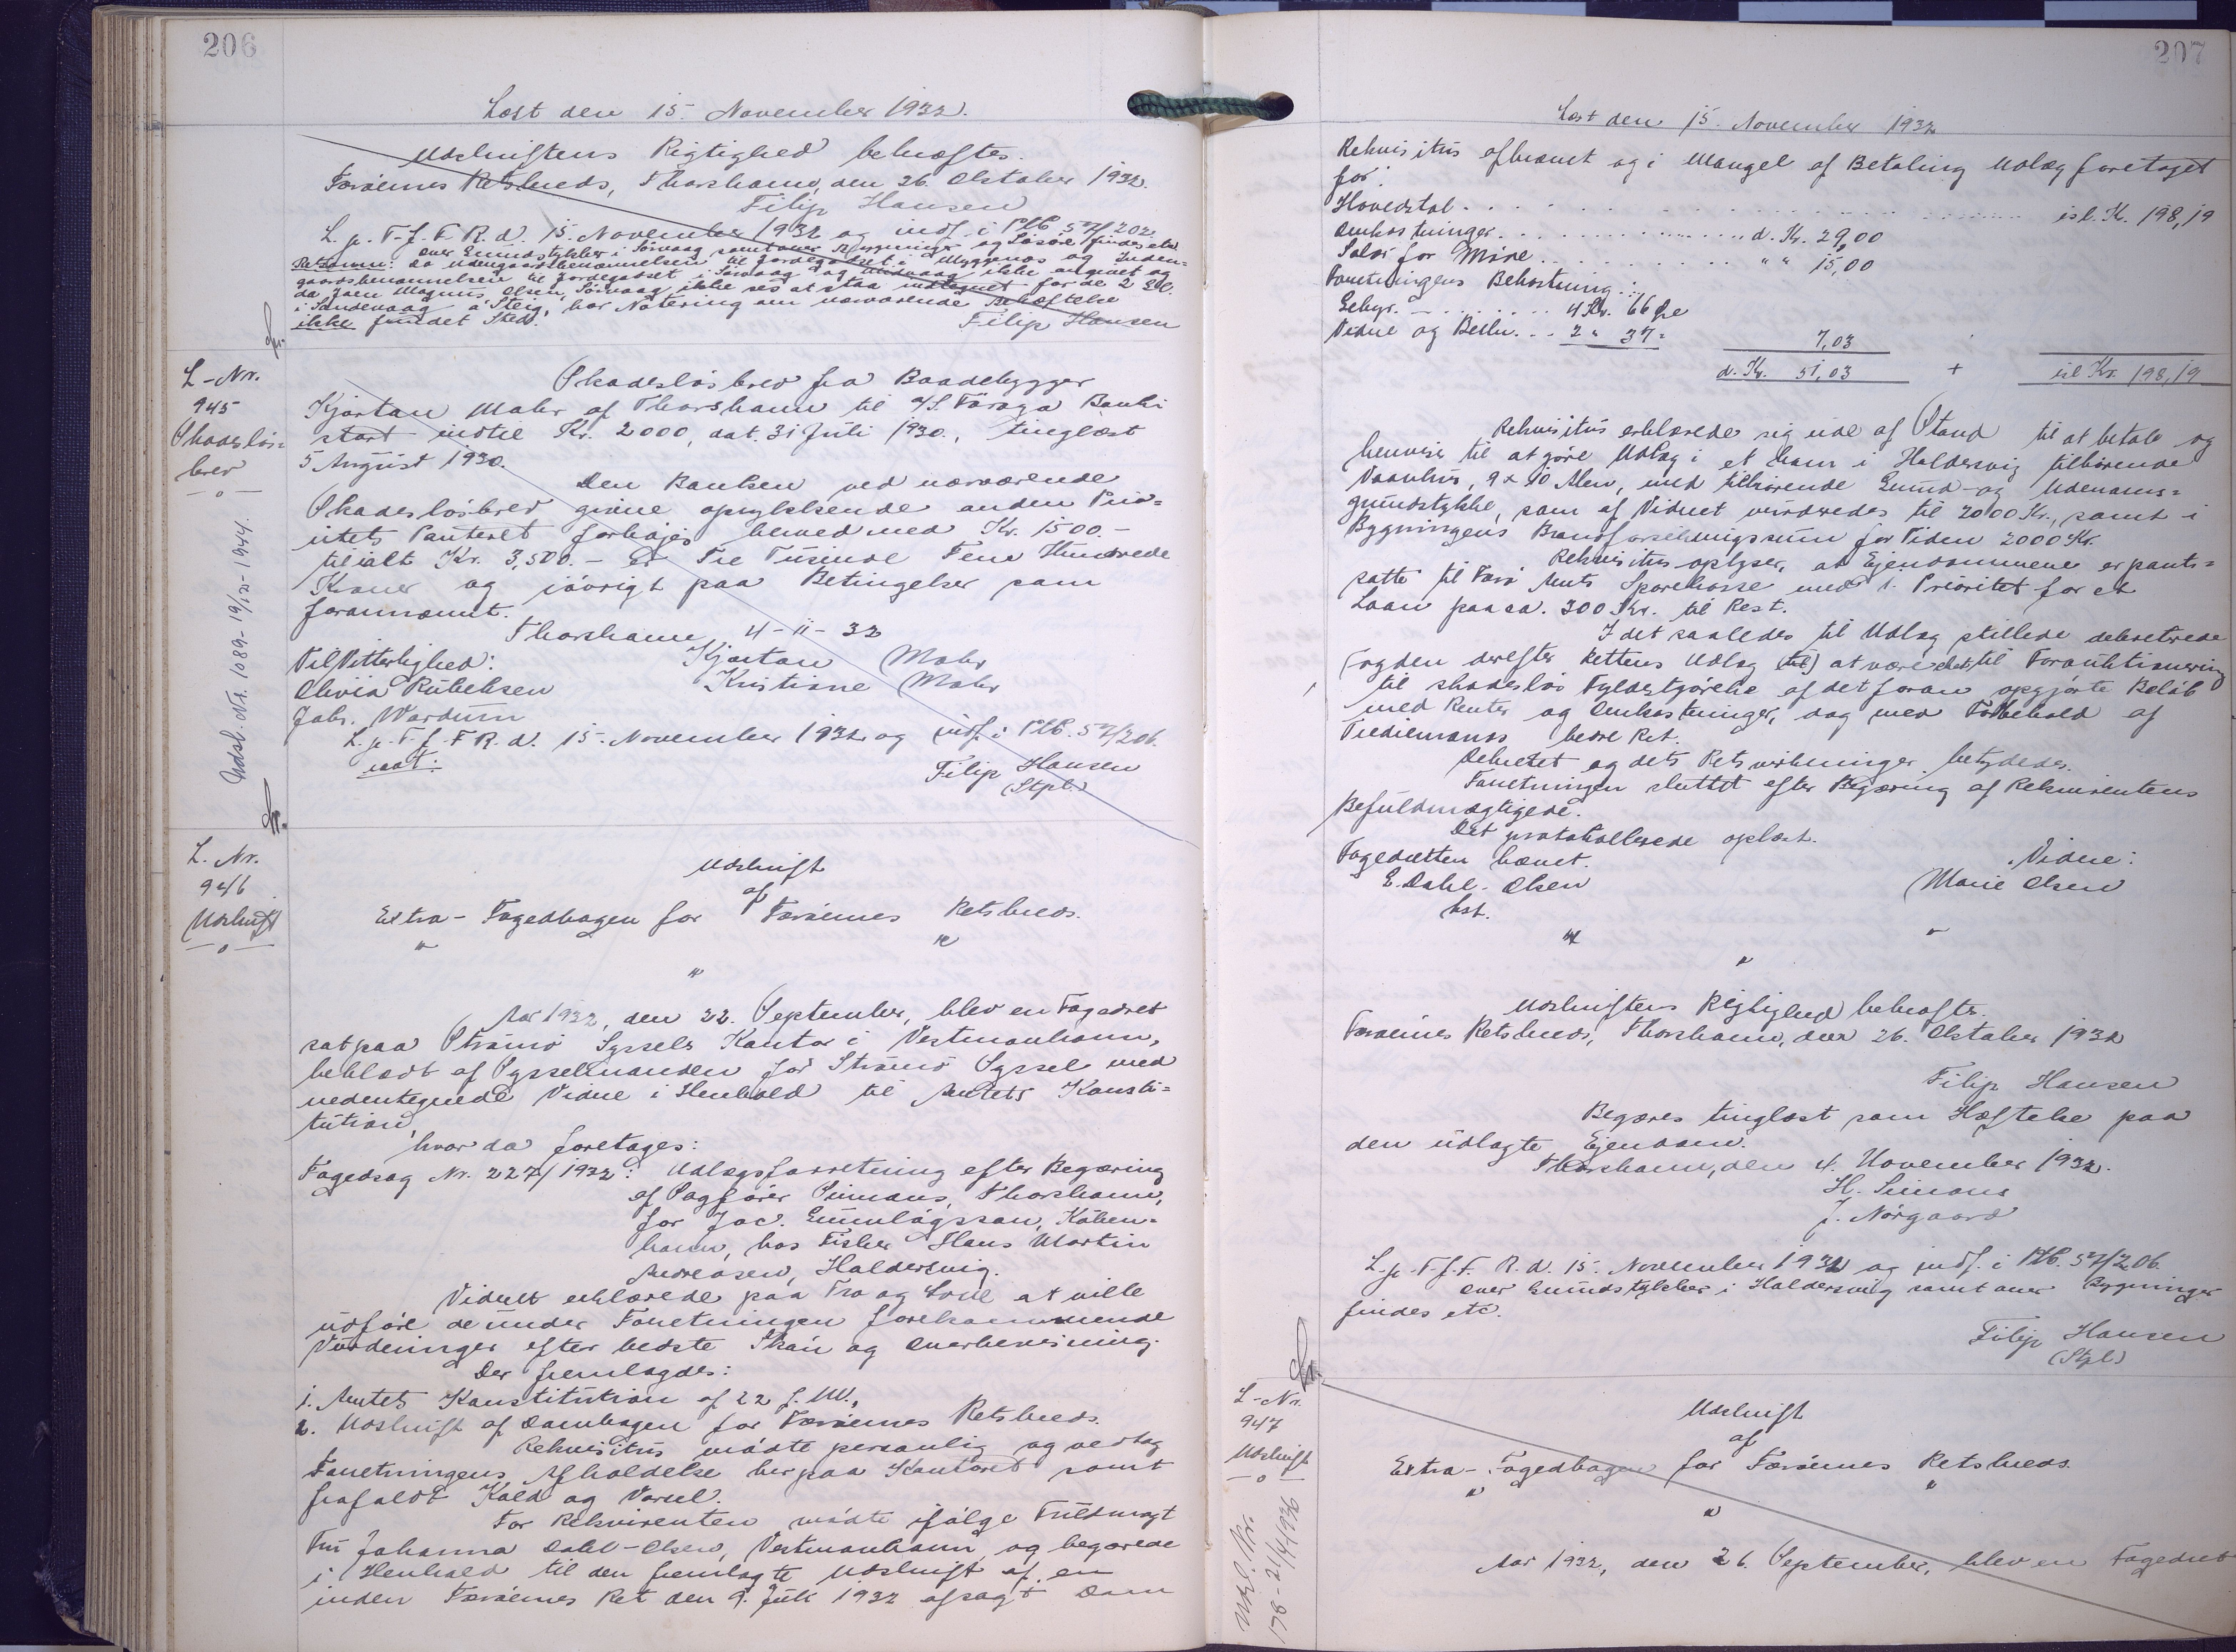 206
Læst den 15. November 1932.
Udskriftens Rigtighed bekræftes.
Færøernes Retskreds, Thorshavn, den 26. Oktober 1932.
Filip Hansen
L. p. T. f. F. R. d. 15. November 1932 og indf. i PtB 57/202.
over Grundstykker i Sörvaag samt over Bygninger og Lösöre findes etc.
Retsanm: Da Udengaardsbenævnelsen til Jordegodset i Myggenæs og Inden=
gaardsbenævnelsen til Jordegodset i Sörvaag og Midvaag ikke angivet og
da Joen Magnus Olsen, Sörvaag ikke ses at staa indtegnet for de 2 Gl.
i Sandevaag a Steig, har Notering om nærværende Behæftelse
ikke fundet Sted.
Filip Hansen
L-Nr.
945
Skadeslös=
brev
—o—
Udsl. Nr. 1089- 19/12- 1944.
Skadeslösbrev fra Baadebygger
Kjartan Mohr af Thorshavn til A/S. Föroya Banki
stort indtil Kr. 2000, dat. 31 Juli 1930., tinglæst
5 August 1930.
Den Banken ved nærværende
Skadeslösbrev givne oprykkende anden Prio=
ritets Panteret forhöjes herved med Kr. 1500.-
til ialt Kr. 3,500.- er Tre Tusinde Fem Hundrede
Kroner og iövrigt paa Betingelser som
forannævnt.
Thorshavn, 4-11-32
Til Vitterlighed:
Kjartan Mohr
Olivia Rubeksen
Kristiane Mohr
Johs. Wardum
L. p. T. f. F R. d. 15. November 1932 og indf. i PtB. 57/206.
Filip Hansen
(Stpl.)
L. Nr.
946
Udskrift
—o—
Udskrift
af
Extra- Fogedbogen for Færöernes Retskreds.
" "
"
Aar 1932, den 22. September, blev en Fogedret
sat paa Strömö Syssels Kontor i Vestmanhavn,
beklædt af Sysselmanden for Strömö Syssel med
nedentegnede Vidne i Henhold til Amtets Konsti=
tution,
hvor da foretages:
Fogedsag Nr. 227/1932: Udlægsforretning efter Begæring
af Sagförer Simons, Thorshavn,
for Jac. Gunnlögsson, Köben=
havn, hos Fisker Hans Martin
Andreasen, Haldersvig.
Vidnet erklærede paa Tro og Love at ville
udföre de under Forretningen forekommende
Vurderinger efter bedste Skön og Overbevisning.
Der fremlagdes:
1. Amtets Konstitution af 22 f. M.,
2. Udskrift af Dombogen for Færöernes Retskreds.
Rekvisitus mödte personlig og vedtog
Forretningens Afholdelse her paa Kontoret samt
frafaldt Kald og Varsel.
For Rekvirenten mödte ifölge Fuldmagt
Fru Johanna Dahl-Olsen, Vestmanhavn og begærede
i Henhold til den fremlagte Udskrift af en
inden Færöernes Ret den 9. Juli 1932 afsagt Dom
207
Læst den 15. November 1932
Rekvisitus afkrævet og i Mangel af Betaling Udlæg foretaget
for:
Hovedstol . . . isl. Kr. 198,19
Omkostninger . . . d. Kr. 29,00
Salær for Möde . . . " " 15,00
Forretningens Bekostning:
Gebyr. . . . 4 Kr. 66 Øre
Vidne og Bekn. . . 2 " 37 "
7,03
d. Kr. 51,03 + isl Kr. 198,19
Rekvisitus erklærede sig ude af Stand til at betale og
henviser til at göre Udlæg i et ham i Haldersvig tilhörende
Vaanhus, 9 x 10 Alen, med tilhörende Grund- og Udenoms=
grundstykke, som af Vidnet vurderedes til 2000 Kr., samt i
Bygningens Brandforsikringssum for Tiden 2000 Kr.
Rekvisitus oplyser, at Ejendommene er pant=
satte til Færö Amts Sparekasse med 1. Prioritet for et
Laan paa ca. 300 Kr. til Rest.
I det saaledes til Udlæg stillede dekreterede
Fogden derefter Rettens Udlæg (til) at være sket til Forauktionering
til skadeslös Fyldestgörelse af det foran opgjorte Belöb
med Renter og Omkostninger, dog med Forbehold af
Trediemands bedre Ret.
Dekretet og dets Retsvirkninger betydedes.
Forretningen sluttet efter Begæring af Rekvirentens
Befuldmægtigede.
Det protokollerede oplæst.
Fogedretten hævet.
Vidne:
E. Dahl-Olsen
Marie Olsen
kst.
" "
"
Udskriftens Rigtighed bekræftes.
Færöernes Retskreds, Thorshavn, den 26. Oktober 1932
Filip Hansen
Begæres tinglæst som Hæftelse paa
den udlagte Ejendom.
Thorshavn, den 4. November 1932.
H. Simons
J. Nörgaard
L. p. T. f. F. R. d. 15. November 1932 og indf. i PtB. 57/206.
over Grundstykker i Haldersvig samt over Bygninger
findes etc.
Filip Hansen
(Stpl.)
L-Nr.
947
Udskrift
—o—
Udsl. Nr.
178-21/4 1936
Udskrift
af
Extra- Fogedbogen for Færöernes Retskreds.
" "
"
Aar 1932, den 26. September, blev en Fogedret